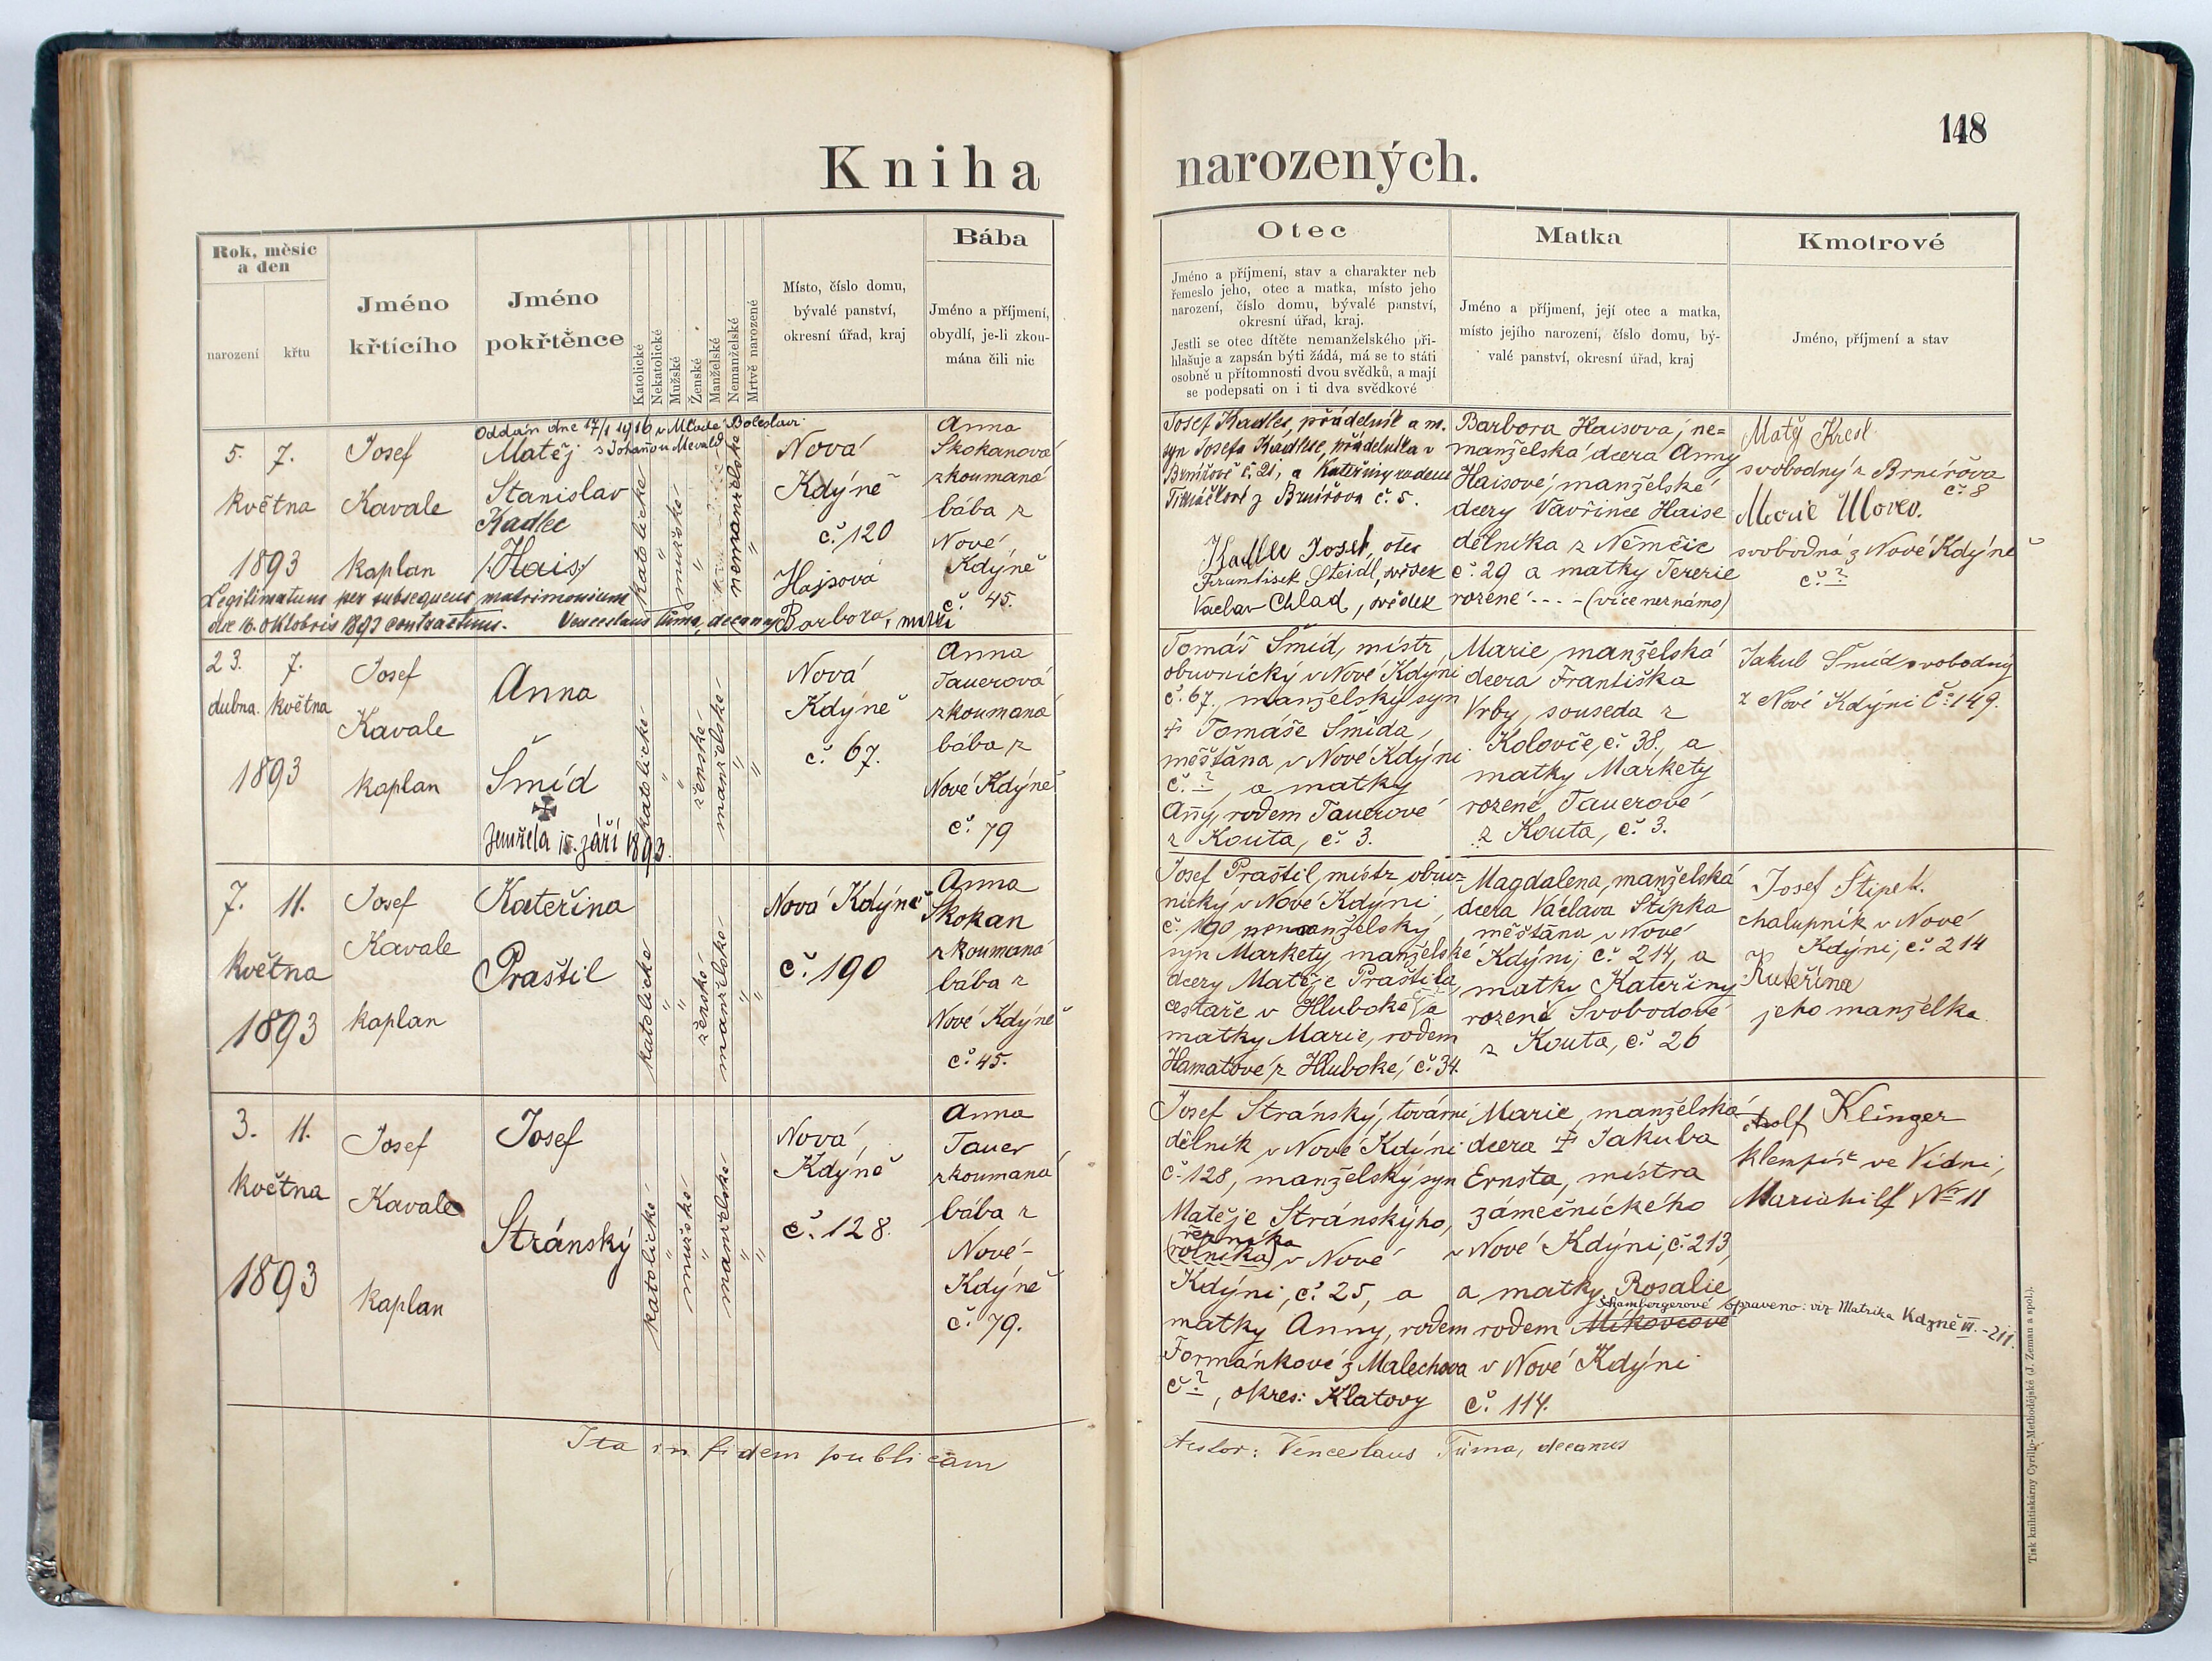 148
Kniha narozených.
Rok, měsíc a den
narození
křtu
Jméno křtícího
Jméno pokřtěnce
Katolické
Nekatolické
Mužské
Ženské
Manželské
Nemanželské
Mrtvě narozené
Místo, číslo domu,
bývalé panství,
okresní úřad, kraj
Bába
Jméno a příjmení,
obydlí, je-li zkou-
mána čili nic
Otec
Jméno a příjmení, stav a charakter neb
řemeslo jeho, otec a matka, místo jeho
narození, číslo domu, bývalé panství,
okresní úřad, kraj.
Jestli se otec dítěte nemanželského při-
hlašuje a zapsán býti žádá, má se to státi
osobně u přítomnosti dvou svědků, a mají
se podepsati on i ti dva svědkové
Matka
Jméno a příjmení, její otec a matka,
místo jejího narození, číslo domu, bý-
valé panství, okresní úřad, kraj
Kmotrové
Jméno, příjmení a stav
5. 7.
května
1893
Josef
Kavale
kaplan
Oddán dne 17/1 1916 v Mladé Boleslavi
s Johanou Mevald
Matěj
Stanislav
Kadlec
/:Hais:/
katolické
"
mužské
"
nemanželské
"
Nová
Kdýně
č. 120
Hajsová
Barbora, matka
Anna
Skokanová
zkoumaná
bába z
Nové
Kdýně
č. 45.
Legitimatus per subsequens matrimonium
die 16. oktobris 1893 contractum. Venceslaus Tůma, decanus
Josef Kadlec, přádelník a m.
syn Josefa Kadlece, přádelníka v
Brnířově č. 21, a Kateřiny rodem
z Brnířova č. 5.
Kadlec Josef, otec
František Steidl, svědek
Vaclav Chlad, svědek
Barbora Haisova, ne=
manželská dcera Anny
Haisové, manželské
dcery Vavřince Haise
dělníka z Němčic
č. 29 a matky Terezie
rozené - - - - (více neznámo)
Matěj Kresl
svobodný z Brnířova
č. 8
Marie
svobodná z Nové Kdýně
č. ?
23. 7.
dubna. května
1893
Josef
Kavale
kaplan
Anna
Šmíd
zemřela 15. září 1893.
katolické
"
"
ženské
manželské
"
"
Nová
Kdýně
č. 67.
Anna
Tauerová
zkoumaná
bába z
Nové Kdýně
č. 79
Tomáš Šmíd, mistr
obuvnický v Nové Kdýni
č. 67., manželský syn
† Tomáše Šmída,
měšťana v Nové Kdýni
č. ?, a matky
Anny, rodem Tauerové
z Kouta, č. 3.
Marie, manželská
dcera Františka
Vrby, souseda z
Kolovče, č. 38., a
matky Markety
rozené Tauerové
z Kouta, č. 3.
Jakub Šmíd svobodný
z Nové Kdýni č. 149.
7. 11.
května
1893
Josef
Kavale
kaplan
Kateřina
Praštil
katolické
"
"
ženské
manželské
"
"
Nová Kdýně
č. 190
Anna
Skokan
zkoumaná
bába z
Nové Kdýně
č. 45.
Josef Praštil, mistr obuv-
nický v Nové Kdýni
č. 190, nemanželský
syn Markety, manželské
dcery Matěje Praštila,
cestaře v Hluboké, a
matky Marie, rodem
Hamatové z Hluboké, č. 34.
Magdalena, manželská
dcera Václava Štípka
měšťana v Nové
Kdýni, č. 214, a
matky Kateřiny
rozené Svobodové
z Kouta, č. 26
Josef Štipek.
chalupník v Nové
Kdýni, č. 214
a
Kateřina
jeho manželka.
3. 11.
května
1893
Josef
Kavale
kaplan
Josef
Stránský
katolické
"
mužské
"
manželské
"
"
Nová
Kdýně
č. 128.
Anna
Tauer
zkoumaná
bába z
Nové-
Kdýně
č. 79.
Josef Stránský, tovární
dělník v Nové Kdýni
č. 128, manželský syn
Matěje Stránskýho,
řezníka
(rolníka) v Nové
Kdýni, č. 25, a
matky Anny, rodem
Formánkové z Malechova
č. ?, okres: Klatovy
Marie, manželská
dcera † Jakuba
Ernsta, mistra
zámečnického
v Nové Kdýni, č. 213,
a matky Rosalie
Schambergerové opraveno: viz Matrika Kdyně III.-211.
rodem Mikovcové
v Nové Kdýni
č. 114.
Adolf Klinger
klempíř ve Vídni,
Mariahilf No 11
Ita in fidem publicam
testor: Venceslaus Tůma, decanus
Tisk knihtiskárny Cyrillo-Methodějské (J. Zeman a spol.).